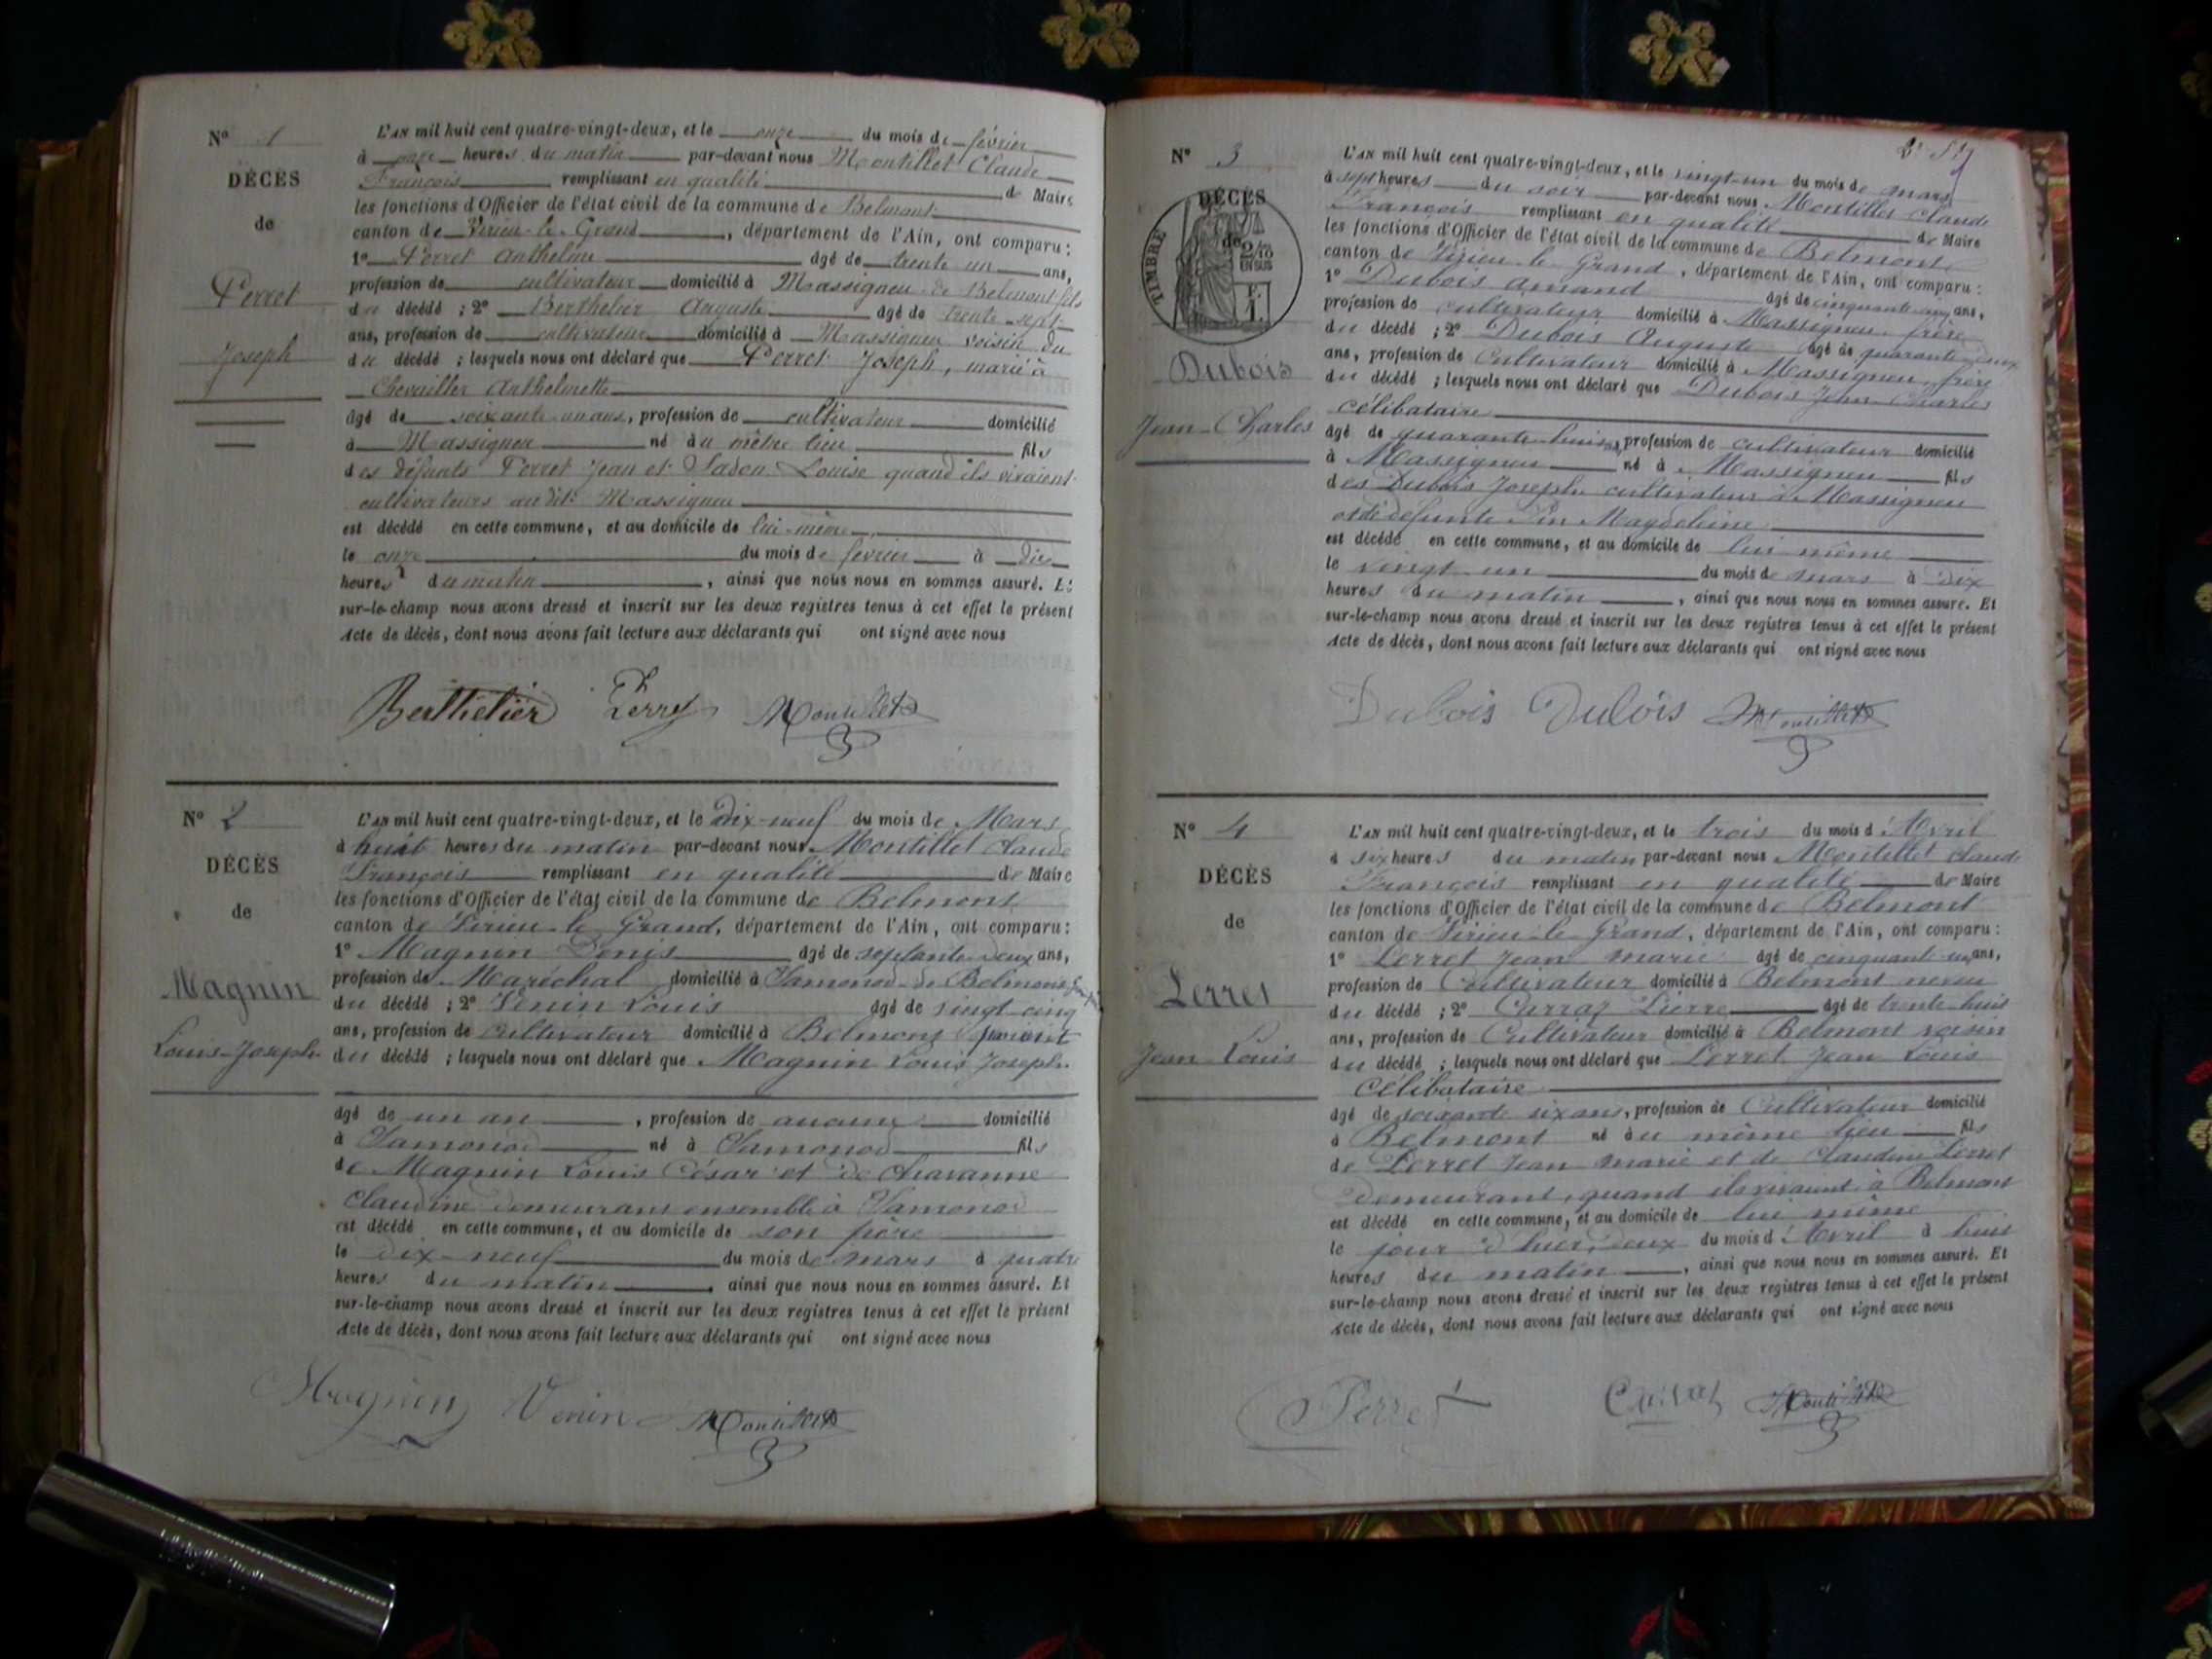 N° 1
DÉCÈS
de
Perret
Joseph
L'AN mil huit cent quatre-vingt-deux, et le onze du mois de février
à onze heures du matin par-devant nous Montillet Claude
François remplissant en qualité de Maire
les fonctions d'Officier de l'état civil de la commune de Belmont
canton de Virieu-le-Grand, département de l'Ain, ont comparu :
1° Perret Anthelme âgé de trente un ans,
profession de cultivateur domicilié à Massigneu de Belmont fils
du décédé ; 2° Berthelier Auguste âgé de trente-sept
ans, profession de cultivateur domicilié à Massigneu voisin du
du décédé ; lesquels nous ont déclaré que Perret Joseph, marié à
Chevailler Anthelmette
âgé de soixante-un ans, profession de cultivateur domicilié
à Massigneu né au même lieu fils
des défunts Perret Jean et Louise quand ils vivaient
cultivateurs audit Massigneu
est décédé en cette commune, et au domicile de lui-même
le onze du mois de février à dix
heures du matin, ainsi que nous nous en sommes assuré. Et
sur-le-champ nous avons dressé et inscrit sur les deux registres tenus à cet effet le présent
Acte de décès, dont nous avons fait lecture aux déclarants qui ont signé avec nous
Berthelier Perret Montillet
N° 2
DÉCÈS
de
Magnin
Louis-Joseph
L'AN mil huit cent quatre-vingt-deux, et le dix-neuf du mois de Mars
à huit heures du matin par-devant nous Montillet Claude
François remplissant en qualité de Maire
les fonctions d'Officier de l'état civil de la commune de Belmont
canton de Virieu-le-Grand, département de l'Ain, ont comparu :
1° Magnin Denis âgé de septante-deux ans,
profession de Maréchal domicilié à Samonod de Belmont
du décédé ; 2° Venin Louis âgé de vingt cinq
ans, profession de Cultivateur domicilié à Belmont
du décédé ; lesquels nous ont déclaré que Magnin Louis Joseph
âgé de un an, profession de aucune domicilié
à Samonod né à Samonod fils
de Magnin Louis César et de Chavanne
Claudine demeurant ensemble à Samonod
est décédé en cette commune, et au domicile de son père
le dix-neuf du mois de mars à quatre
heures du matin, ainsi que nous nous en sommes assuré. Et
sur-le-champ nous avons dressé et inscrit sur les deux registres tenus à cet effet le présent
Acte de décès, dont nous avons fait lecture aux déclarants qui ont signé avec nous
Magnin Venin Montillet
N° 3
DÉCÈS
de
TIMBRE
2/10
EN SUS
Dubois
Jean-Charles
L'AN mil huit cent quatre-vingt-deux, et le vingt-un du mois de mars
à sept heures du soir par-devant nous Montillet Claude
François remplissant en qualité de Maire
les fonctions d'Officier de l'état civil de la commune de Belmont
canton de Virieu le Grand, département de l'Ain, ont comparu :
1° Dubois Amand âgé de cinquante ans,
profession de cultivateur domicilié à Massigneu frère
du décédé ; 2° Dubois Auguste âgé de quarante-deux
ans, profession de Cultivateur domicilié à Massigneu frère
du décédé ; lesquels nous ont déclaré que Dubois Jean Charles
célibataire
âgé de quarante-huit ans, profession de cultivateur domicilié
à Massigneu né à Massigneu fils
des Dubois Joseph cultivateur à Massigneu
et de défunte Pin Magdeleine
est décédé en cette commune, et au domicile de lui même
le vingt un du mois de mars à dix
heures du matin, ainsi que nous nous en sommes assuré. Et
sur-le-champ nous avons dressé et inscrit sur les deux registres tenus à cet effet le présent
Acte de décès, dont nous avons fait lecture aux déclarants qui ont signé avec nous
Dubois Dubois Montillet
N° 4
DÉCÈS
de
Perret
Jean Louis
L'AN mil huit cent quatre-vingt-deux, et le trois du mois d'Avril
à six heures du matin par-devant nous Montillet Claude
François remplissant en qualité de Maire
les fonctions d'Officier de l'état civil de la commune de Belmont
canton de Virieu-le-Grand, département de l'Ain, ont comparu :
1° Perret Jean Marie âgé de cinquante-un ans,
profession de Cultivateur domicilié à Belmont neveu
du décédé ; 2° Curraz Pierre âgé de trente-huit
ans, profession de Cultivateur domicilié à Belmont voisin
du décédé ; lesquels nous ont déclaré que Perret Jean Louis
Célibataire
âgé de soixante six ans, profession de Cultivateur domicilié
à Belmont né au même lieu fils
de Perret Jean Marie et de Claudine Perret
demeurant, quand ils vivaient à Belmont
est décédé en cette commune, et au domicile de lui même
le jour d'hier, deux du mois d'Avril à huit
heures du matin, ainsi que nous nous en sommes assuré. Et
sur-le-champ nous avons dressé et inscrit sur les deux registres tenus à cet effet le présent
Acte de décès, dont nous avons fait lecture aux déclarants qui ont signé avec nous
Perret Curraz Montillet